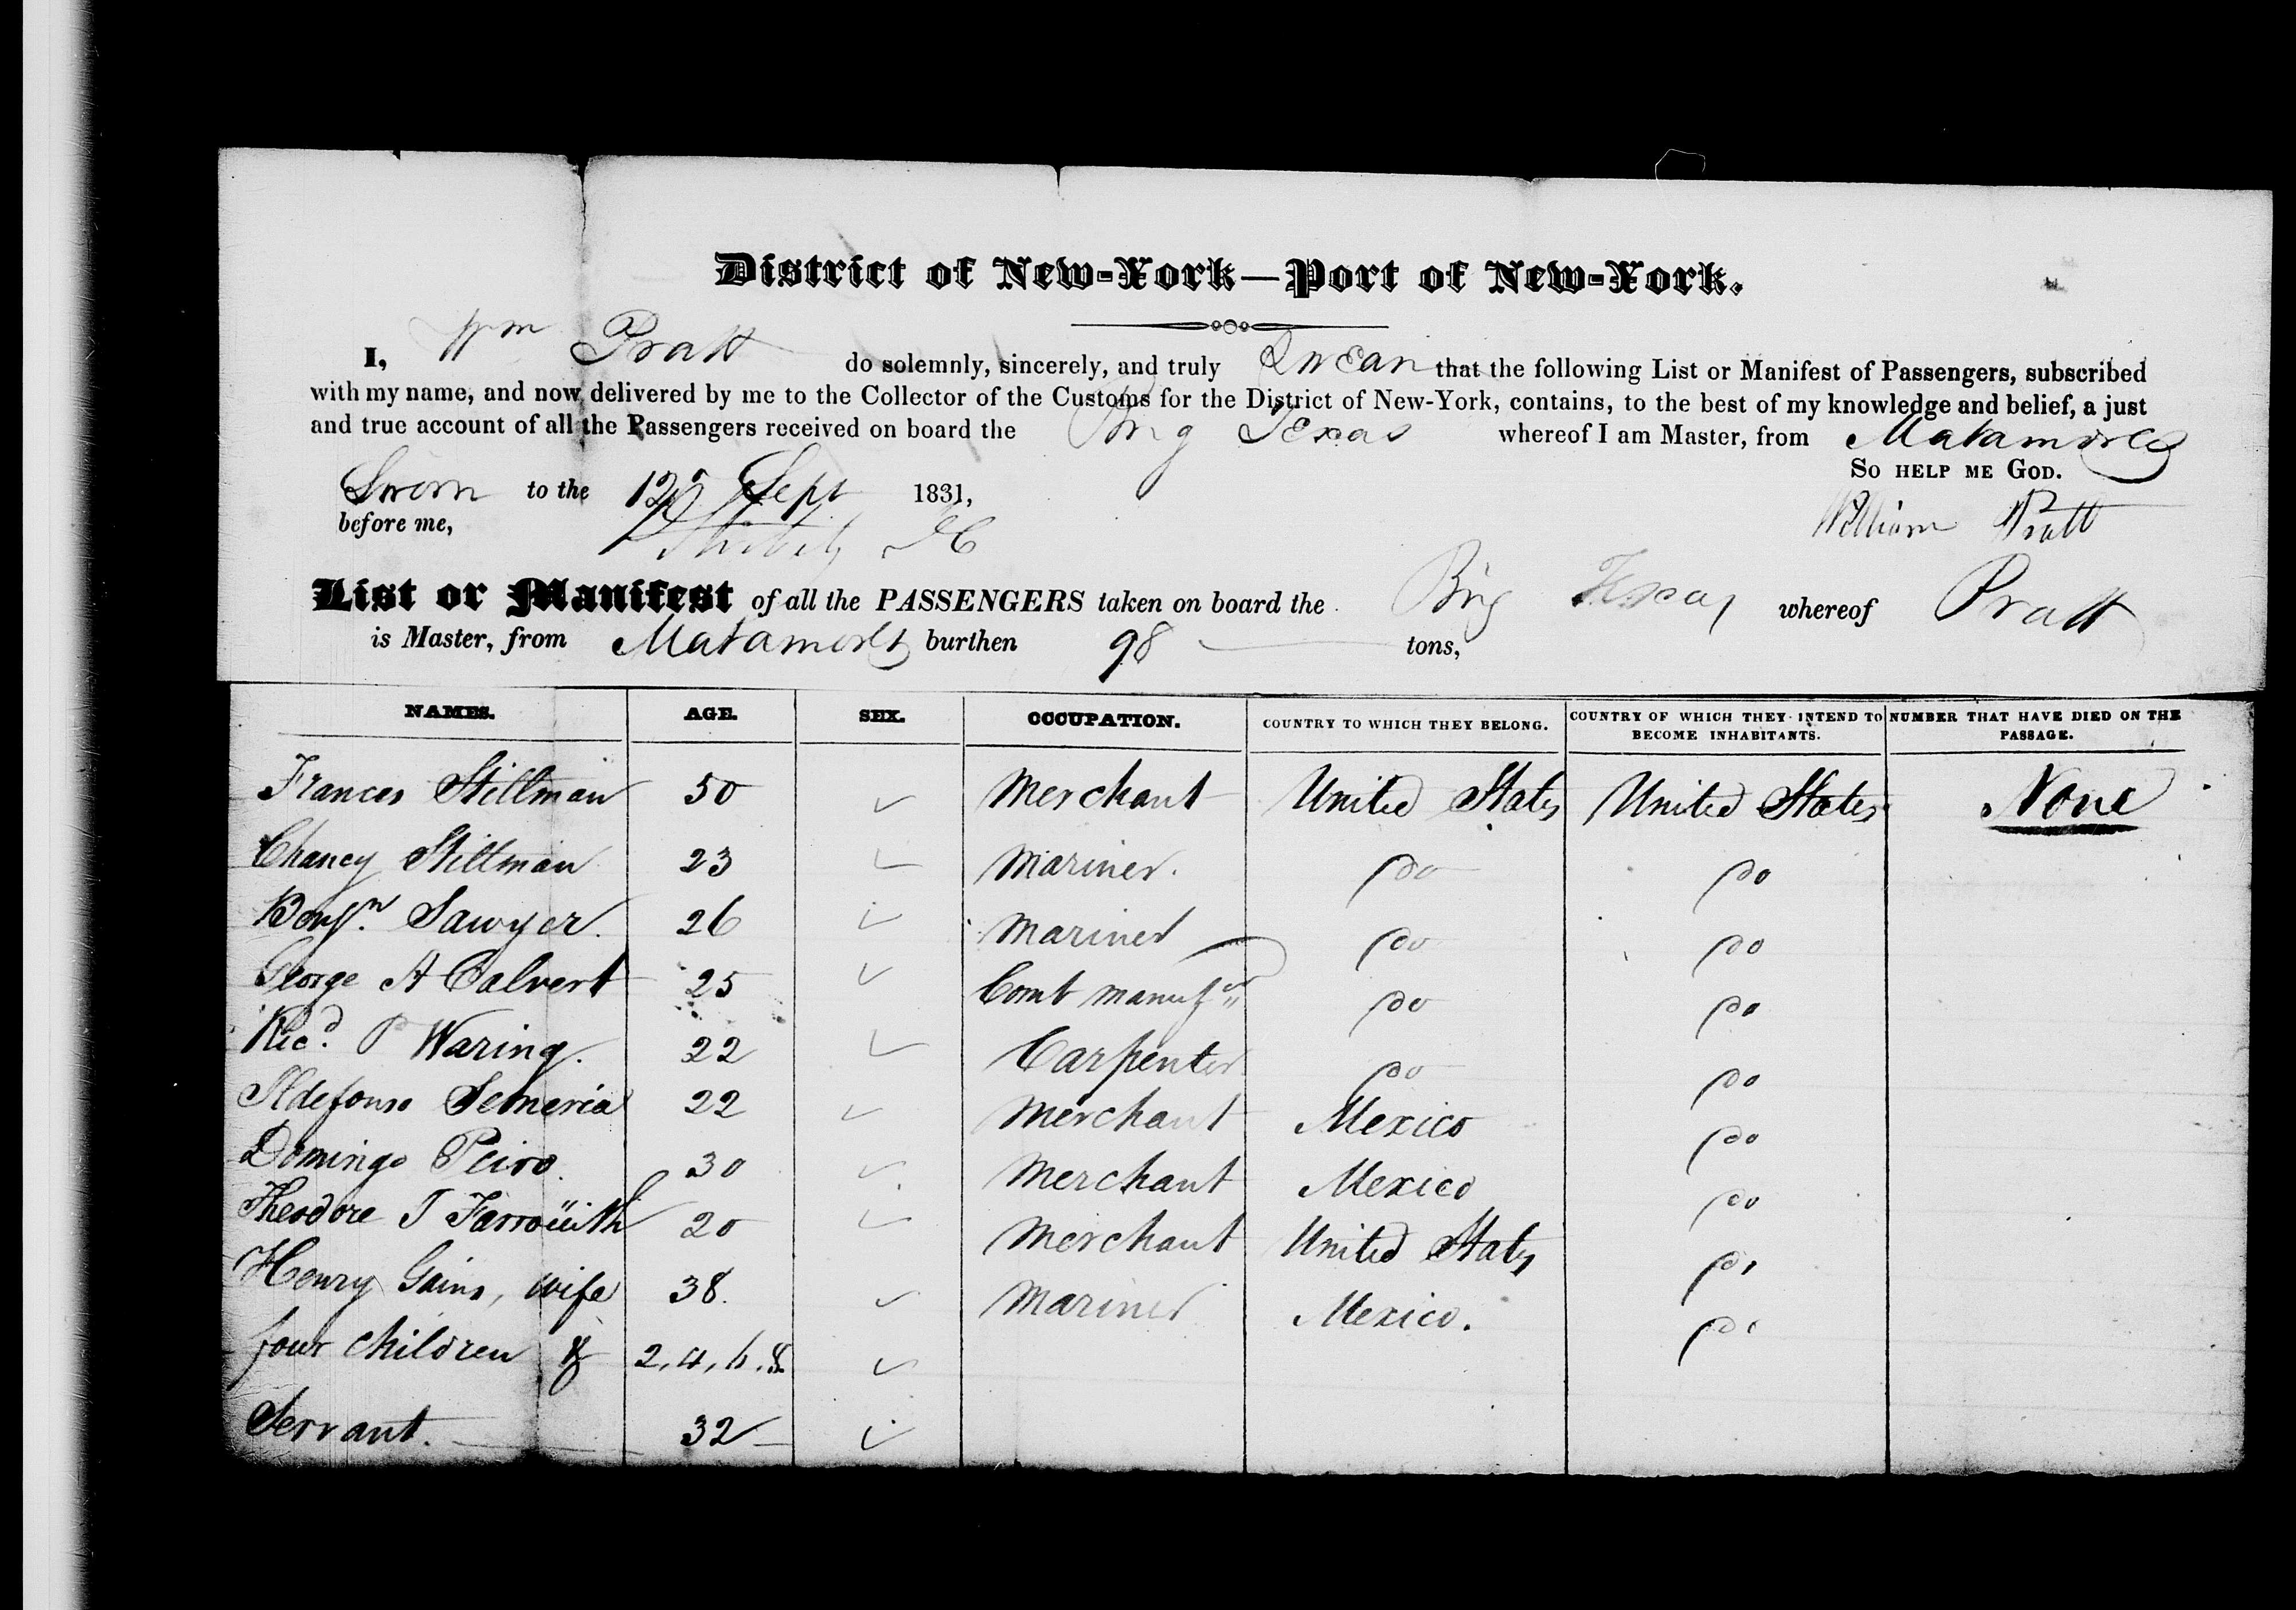 District of New-York—Port of New-York.
I, Wm Pratt do solemnly, sincerely, and truly Swear that the following List or Manifest of Passengers, subscribed
with my name, and now delivered by me to the Collector of the Customs for the District of New-York, contains, to the best of my knowledge and belief, a just
and true account of all the Passengers received on board the Brig Texas whereof I am Master, from Matamoras
So help me God.
Sworn to the 12 Sept 1831,
before me,
William Pratt
List or Manifest of all the PASSENGERS taken on board the Brig Texas whereof Pratt
is Master, from Matamoras burthen 98 tons,
NAMES. AGE. SEX. OCCUPATION. COUNTRY TO WHICH THEY BELONG. COUNTRY OF WHICH THEY INTEND TO BECOME INHABITANTS. NUMBER THAT HAVE DIED ON THE PASSAGE.
Frances Stillman 50 ✓ Merchant United States United States None
Chancy Stillman 23 ✓ Mariner. Do Do
Benjn. Sawyer. 26 ✓ Mariner Do Do
George A Calvert 25 ✓ Comb manufr Do Do
Ricd. P Waring. 22 ✓ Carpenter Do Do
Ildefonso Semeria 22 ✓ Merchant Mexico Do
Domingo Peiro. 30 ✓ Merchant Mexico Do
Theodore J 20 ✓ Merchant United States Do
Henry Gains, wife 38. ✓ Mariner Mexico. Do
four children & 2, 4, 6, 8 ✓
Servant. 32 ✓